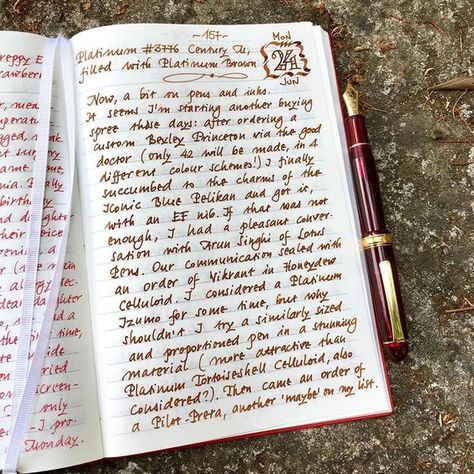 ~157~
Platinum #3776 Century UEF,
filled with Platinum Brown
MON
24
JUN
Now, a bit on pens and inks.
It seems I'm starting another buying
spree those days: after ordering a
custom Bexley Princeton via the good
doctor (only 42 will be made, in 4
different colour schemes!) I finally
succumbed to the charms of the
Iconic Blue Pelikan and got it,
with an EF nib. If that was not
enough, I had a pleasant conver-
sation with Arun Singhi of Lotus
Pens. Our communication sealed with
an order of Vikrant in Honeydew
Celluloid. I considered a Platinum
Izumo for some time, but why
shouldn't I try a similarly sized
and proportioned pen in a stunning
material (more attractive than
Platinum Tortoiseshell Celluloid, also
considered?). Then came an order of
a Pilot-Preta, another 'maybe' on my list.
daughter
time,
screen-
only
I pro-